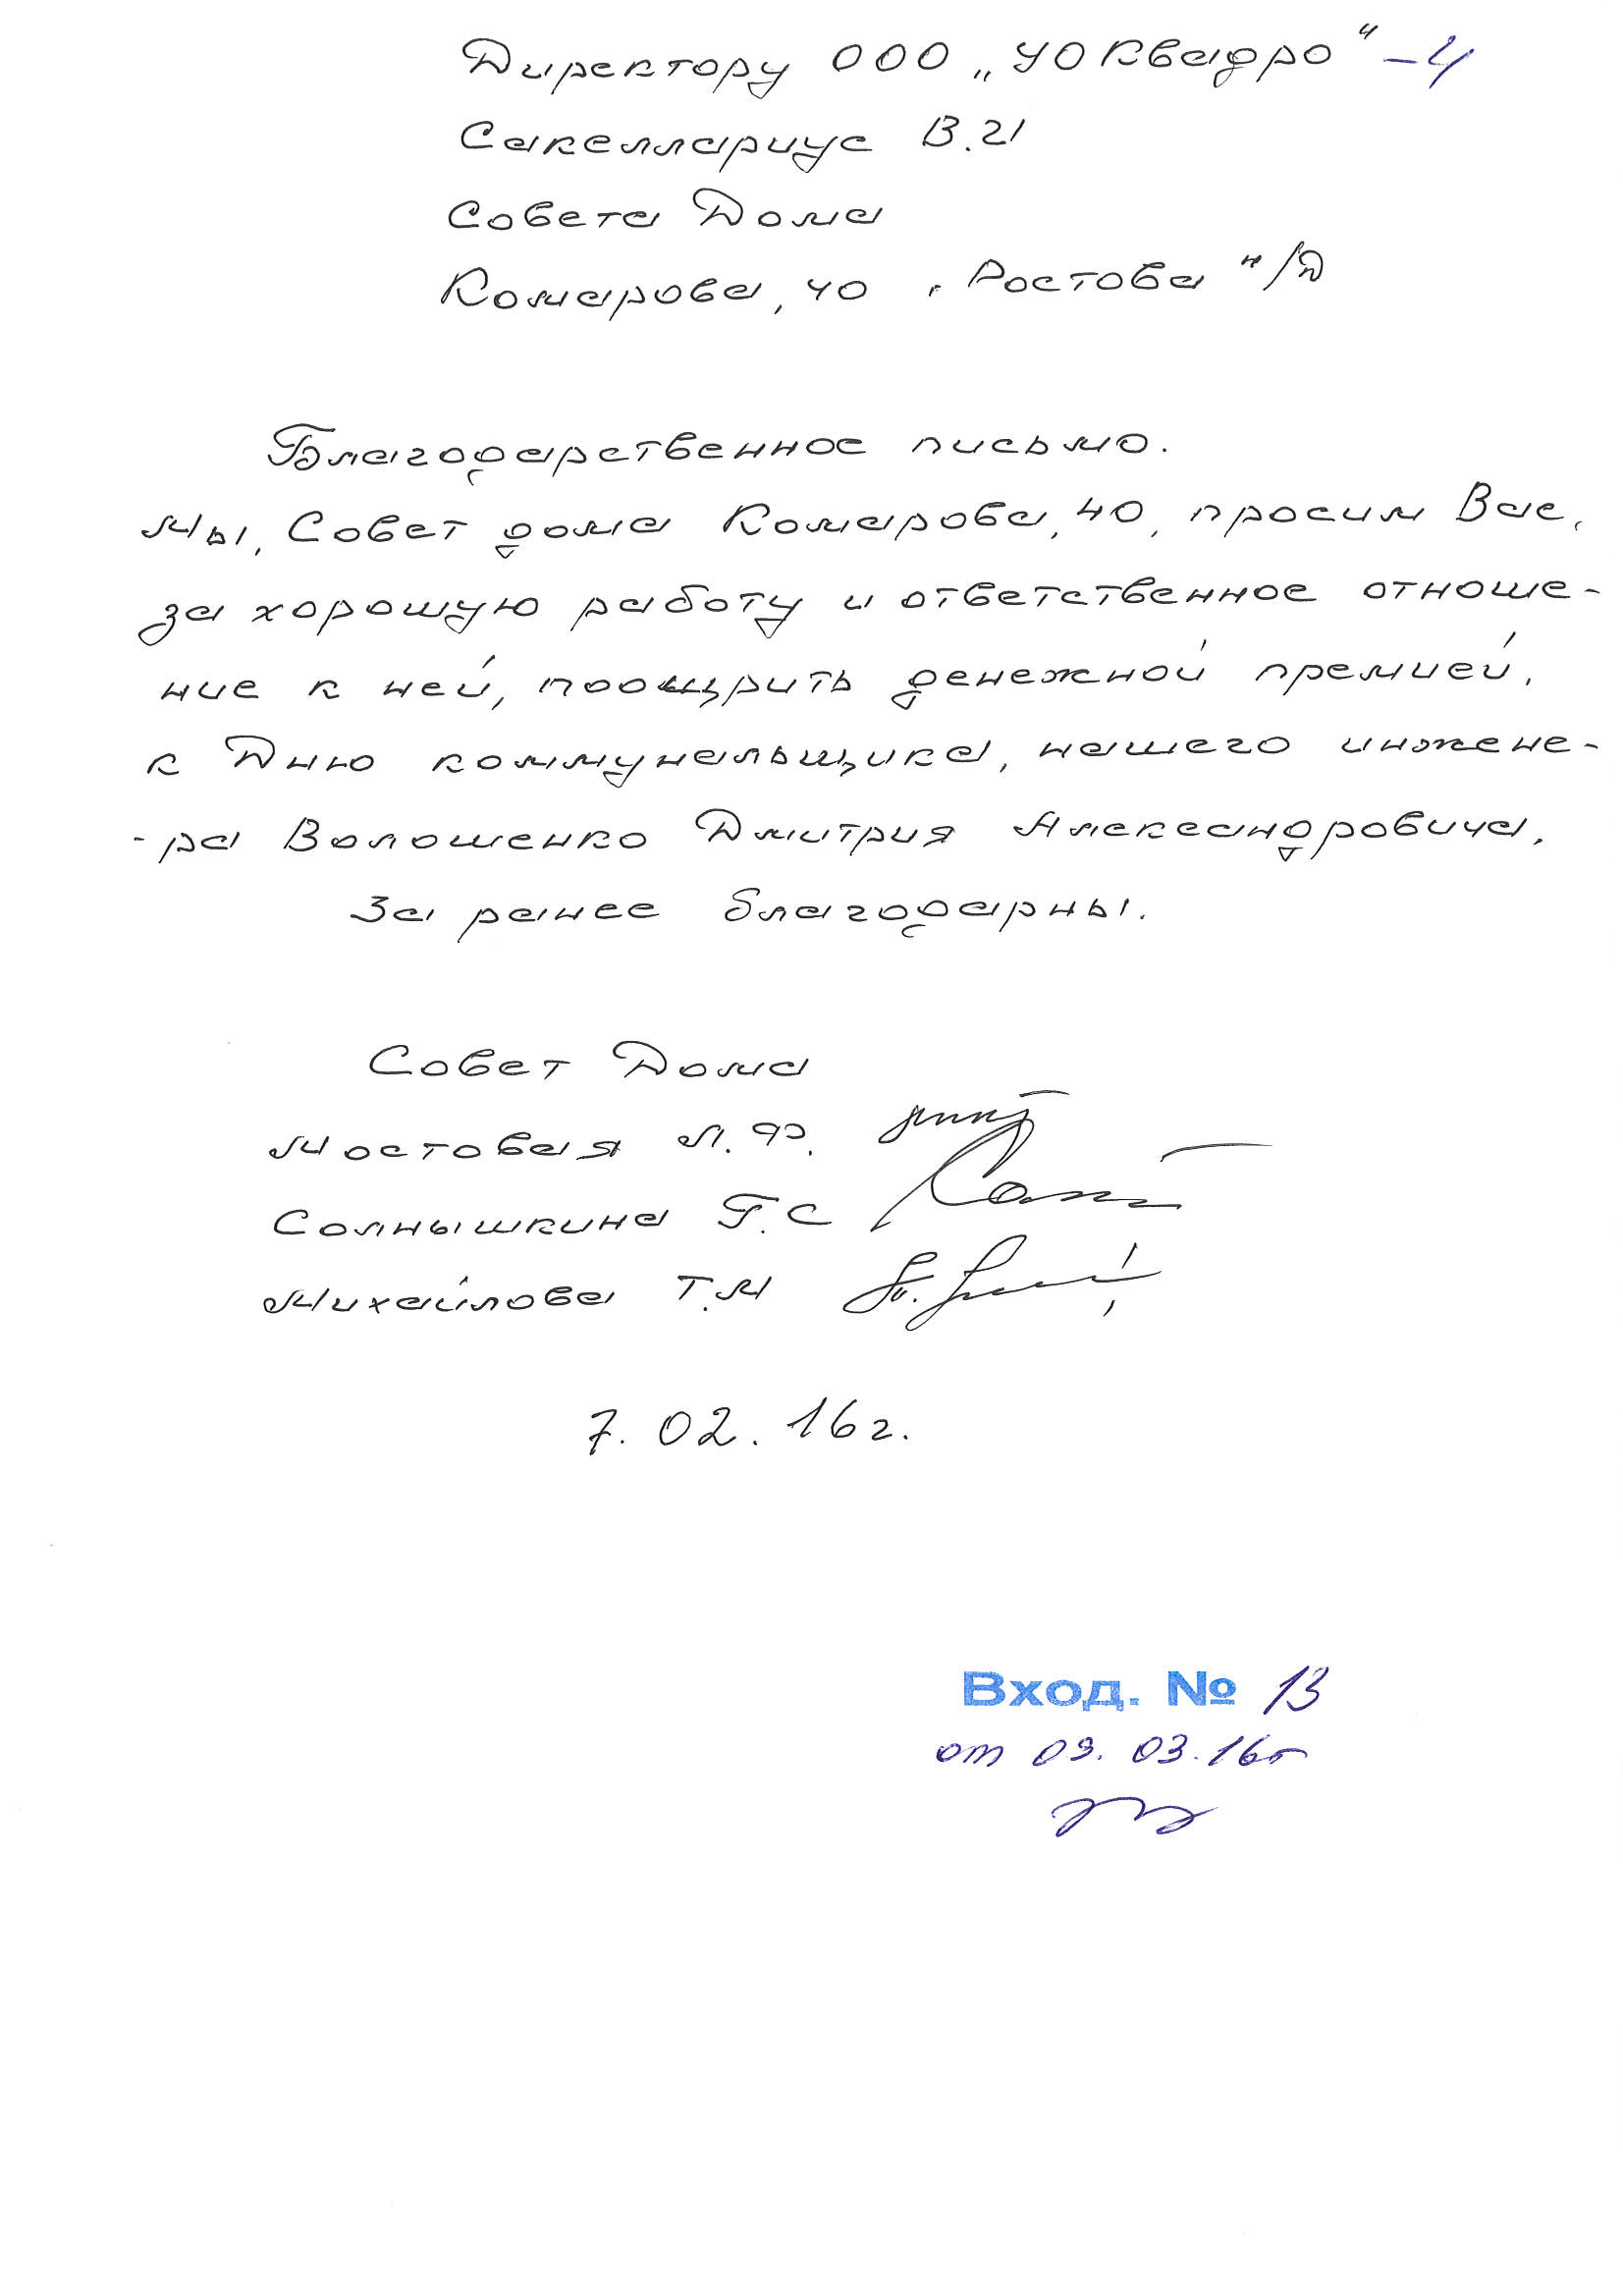 Директору ООО „УО Квадро" -4
Сакеллариус В.И
Совета Дома
Комарова, 40, Ростова н/Д
Благодарственное письмо.
Мы, Совет дома Комарова, 40, просим Вас,
за хорошую работу и ответственное отноше-
ние к ней, поощрить денежной премией,
к Дню коммунальщика, нашего инжене-
-ра Волошенко Дмитрия Александровича.
За ранее благодарны.
Совет Дома
Мостовая Л.Ф.
Солнышкина Г.С
Михайлова Т.М
7.02.16г.
Вход. № 13
от 09.03.16г